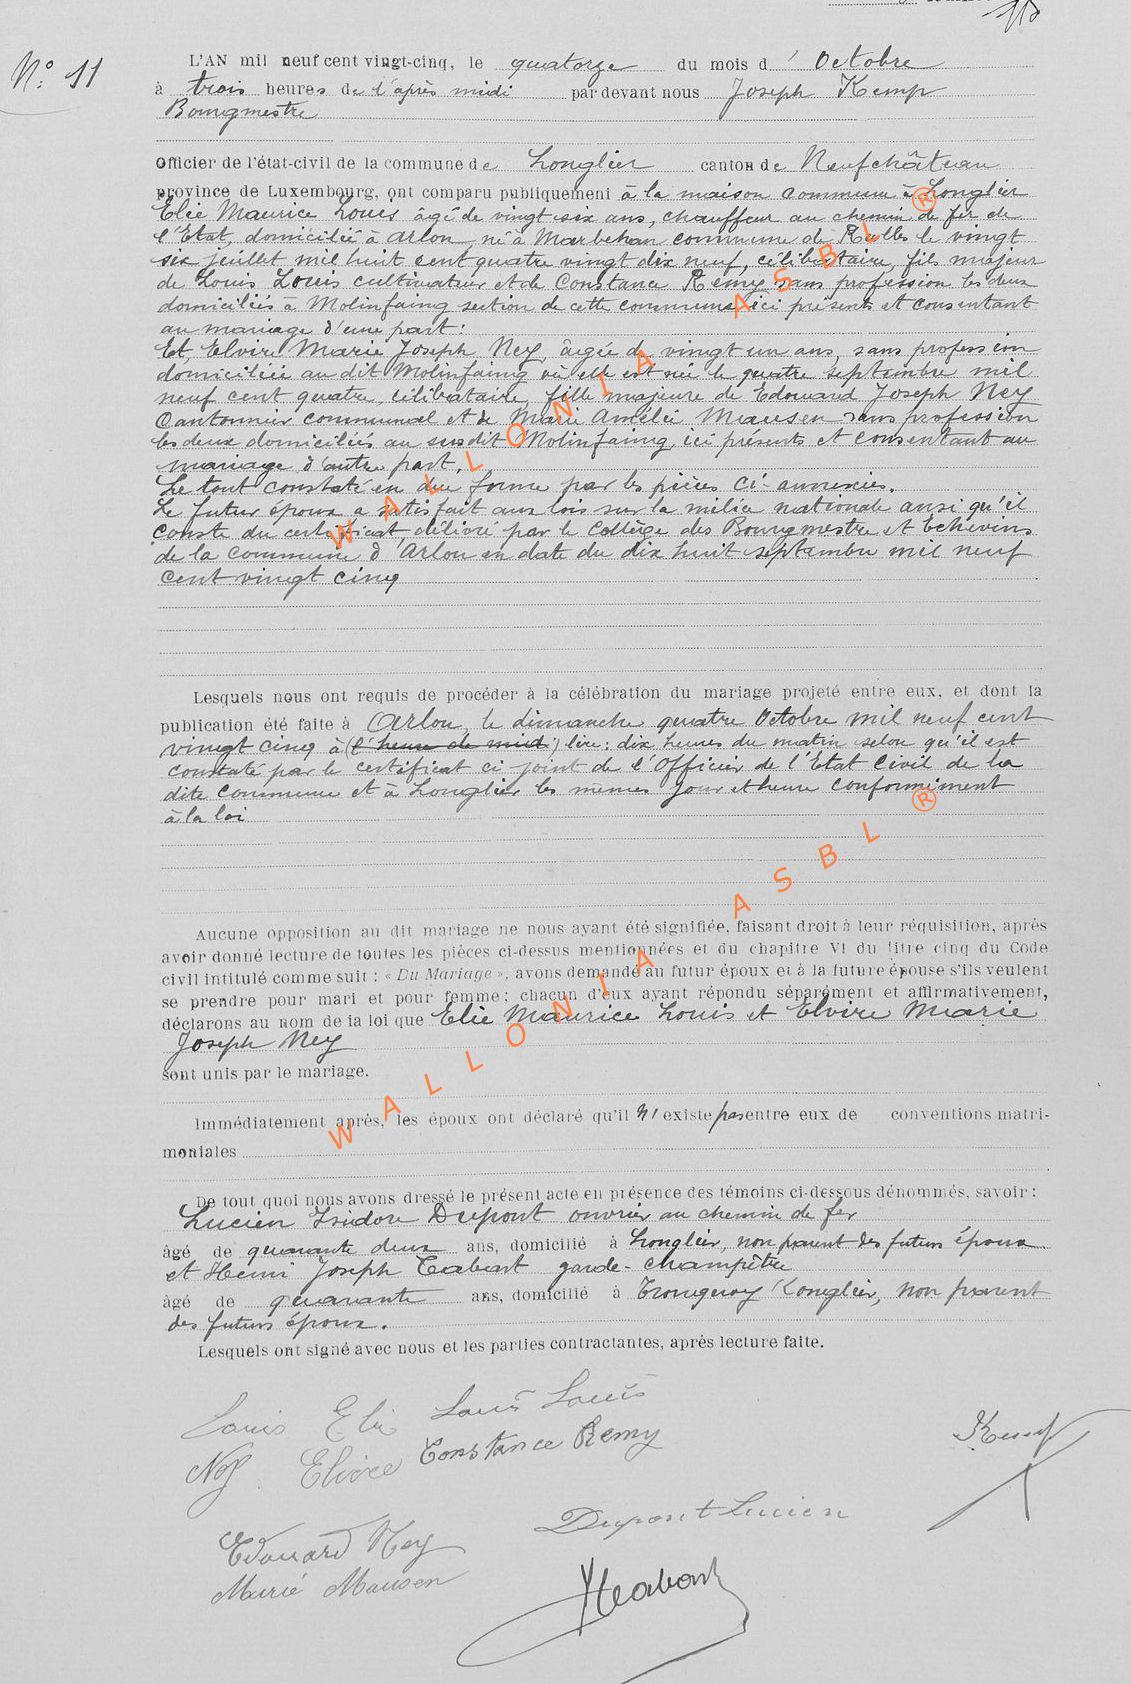 N° 11
L'AN mil neuf cent vingt-cinq, le quatorze du mois d' Octobre
à trois heures de l'après midi par devant nous Joseph Kemp
Bourgmestre
Officier de l'état-civil de la commune de Longlier canton de Neufchâteau
province de Luxembourg, ont comparu publiquement à la maison commune à Longlier
Elie Maurice Louis âgé de vingt six ans, chauffeur au chemin de fer de
l'Etat, domicilié à Arlon, né à Marbehan commune de Rulles le vingt
six juillet mil huit cent quatre vingt dix neuf, célibataire, fils majeur
de Louis Louis cultivateur et de Constance Remy sans profession les deux
domiciliés à Molinfaing section de cette commune ici présents et consentant
au mariage d'une part:
Et, Elvire Marie Joseph Ney, âgée de vingt un ans, sans profession
domiciliée au dit Molinfaing où elle est née le quatre septembre mil
neuf cent quatre, célibataire, fille majeure de Edouard Joseph Ney
Cantonnier communal et de Marie Amélie Mausen sans profession
les deux domiciliés au susdit Molinfaing, ici présents et consentant au
mariage d'autre part.
Le tout constaté en due forme par les pièces ci-annexées.
Le futur époux a satisfait aux lois sur la milice nationale ansi qu'il
conste du certificat, délivré par le Collège des Bourgmestre et Echevins
de la commune d'Arlon en date du dix huit septembre mil neuf
cent vingt cinq
Lesquels nous ont requis de procéder à la célébration du mariage projeté entre eux, et dont la
publication été faite à Arlon, le dimanche quatre Octobre mil neuf cent
vingt cinq à (l'heure de midi) lire: dix heures du matin selon qu'il est
constaté par le certificat ci joint de l'Officier de l'Etat Civil de la
dite commune et à Longlier les mêmes jour et heure conformément
à la loi
Aucune opposition au dit mariage ne nous ayant été signifiée, faisant droit à leur réquisition, après
avoir donné lecture de toutes les pièces ci-dessus mentionnées et du chapitre VI du titre cinq du Code
civil intitulé comme suit : « Du Mariage », avons demandé au futur époux et à la future épouse s'ils veulent
se prendre pour mari et pour femme; chacun d'eux ayant répondu séparément et affirmativement,
déclarons au nom de la loi que Elie Maurice Louis et Elvire Marie
Joseph Ney
sont unis par le mariage.
Immédiatement après, les époux ont déclaré qu'il n'existe pas entre eux de conventions matri-
moniales
De tout quoi nous avons dressé le présent acte en présence des témoins ci-dessous dénommés, savoir :
Lucien Isidore Dupont ouvrier au chemin de fer
âgé de quarante deux ans, domicilié à Longlier, non parent des futurs époux
et Henri Joseph Tabart garde-champêtre
âgé de quarante ans, domicilié à Tronquoy Longlier, non parent
des futurs époux.
Lesquels ont signé avec nous et les parties contractantes, après lecture faite.
Louis Elie Louis Louis
Ney Elvire Constance Remy
Kemp
Dupont Lucien
Edouard Ney
Marie Mausen
WALLONIA ASBL ®
WALLONIA ASBL ®